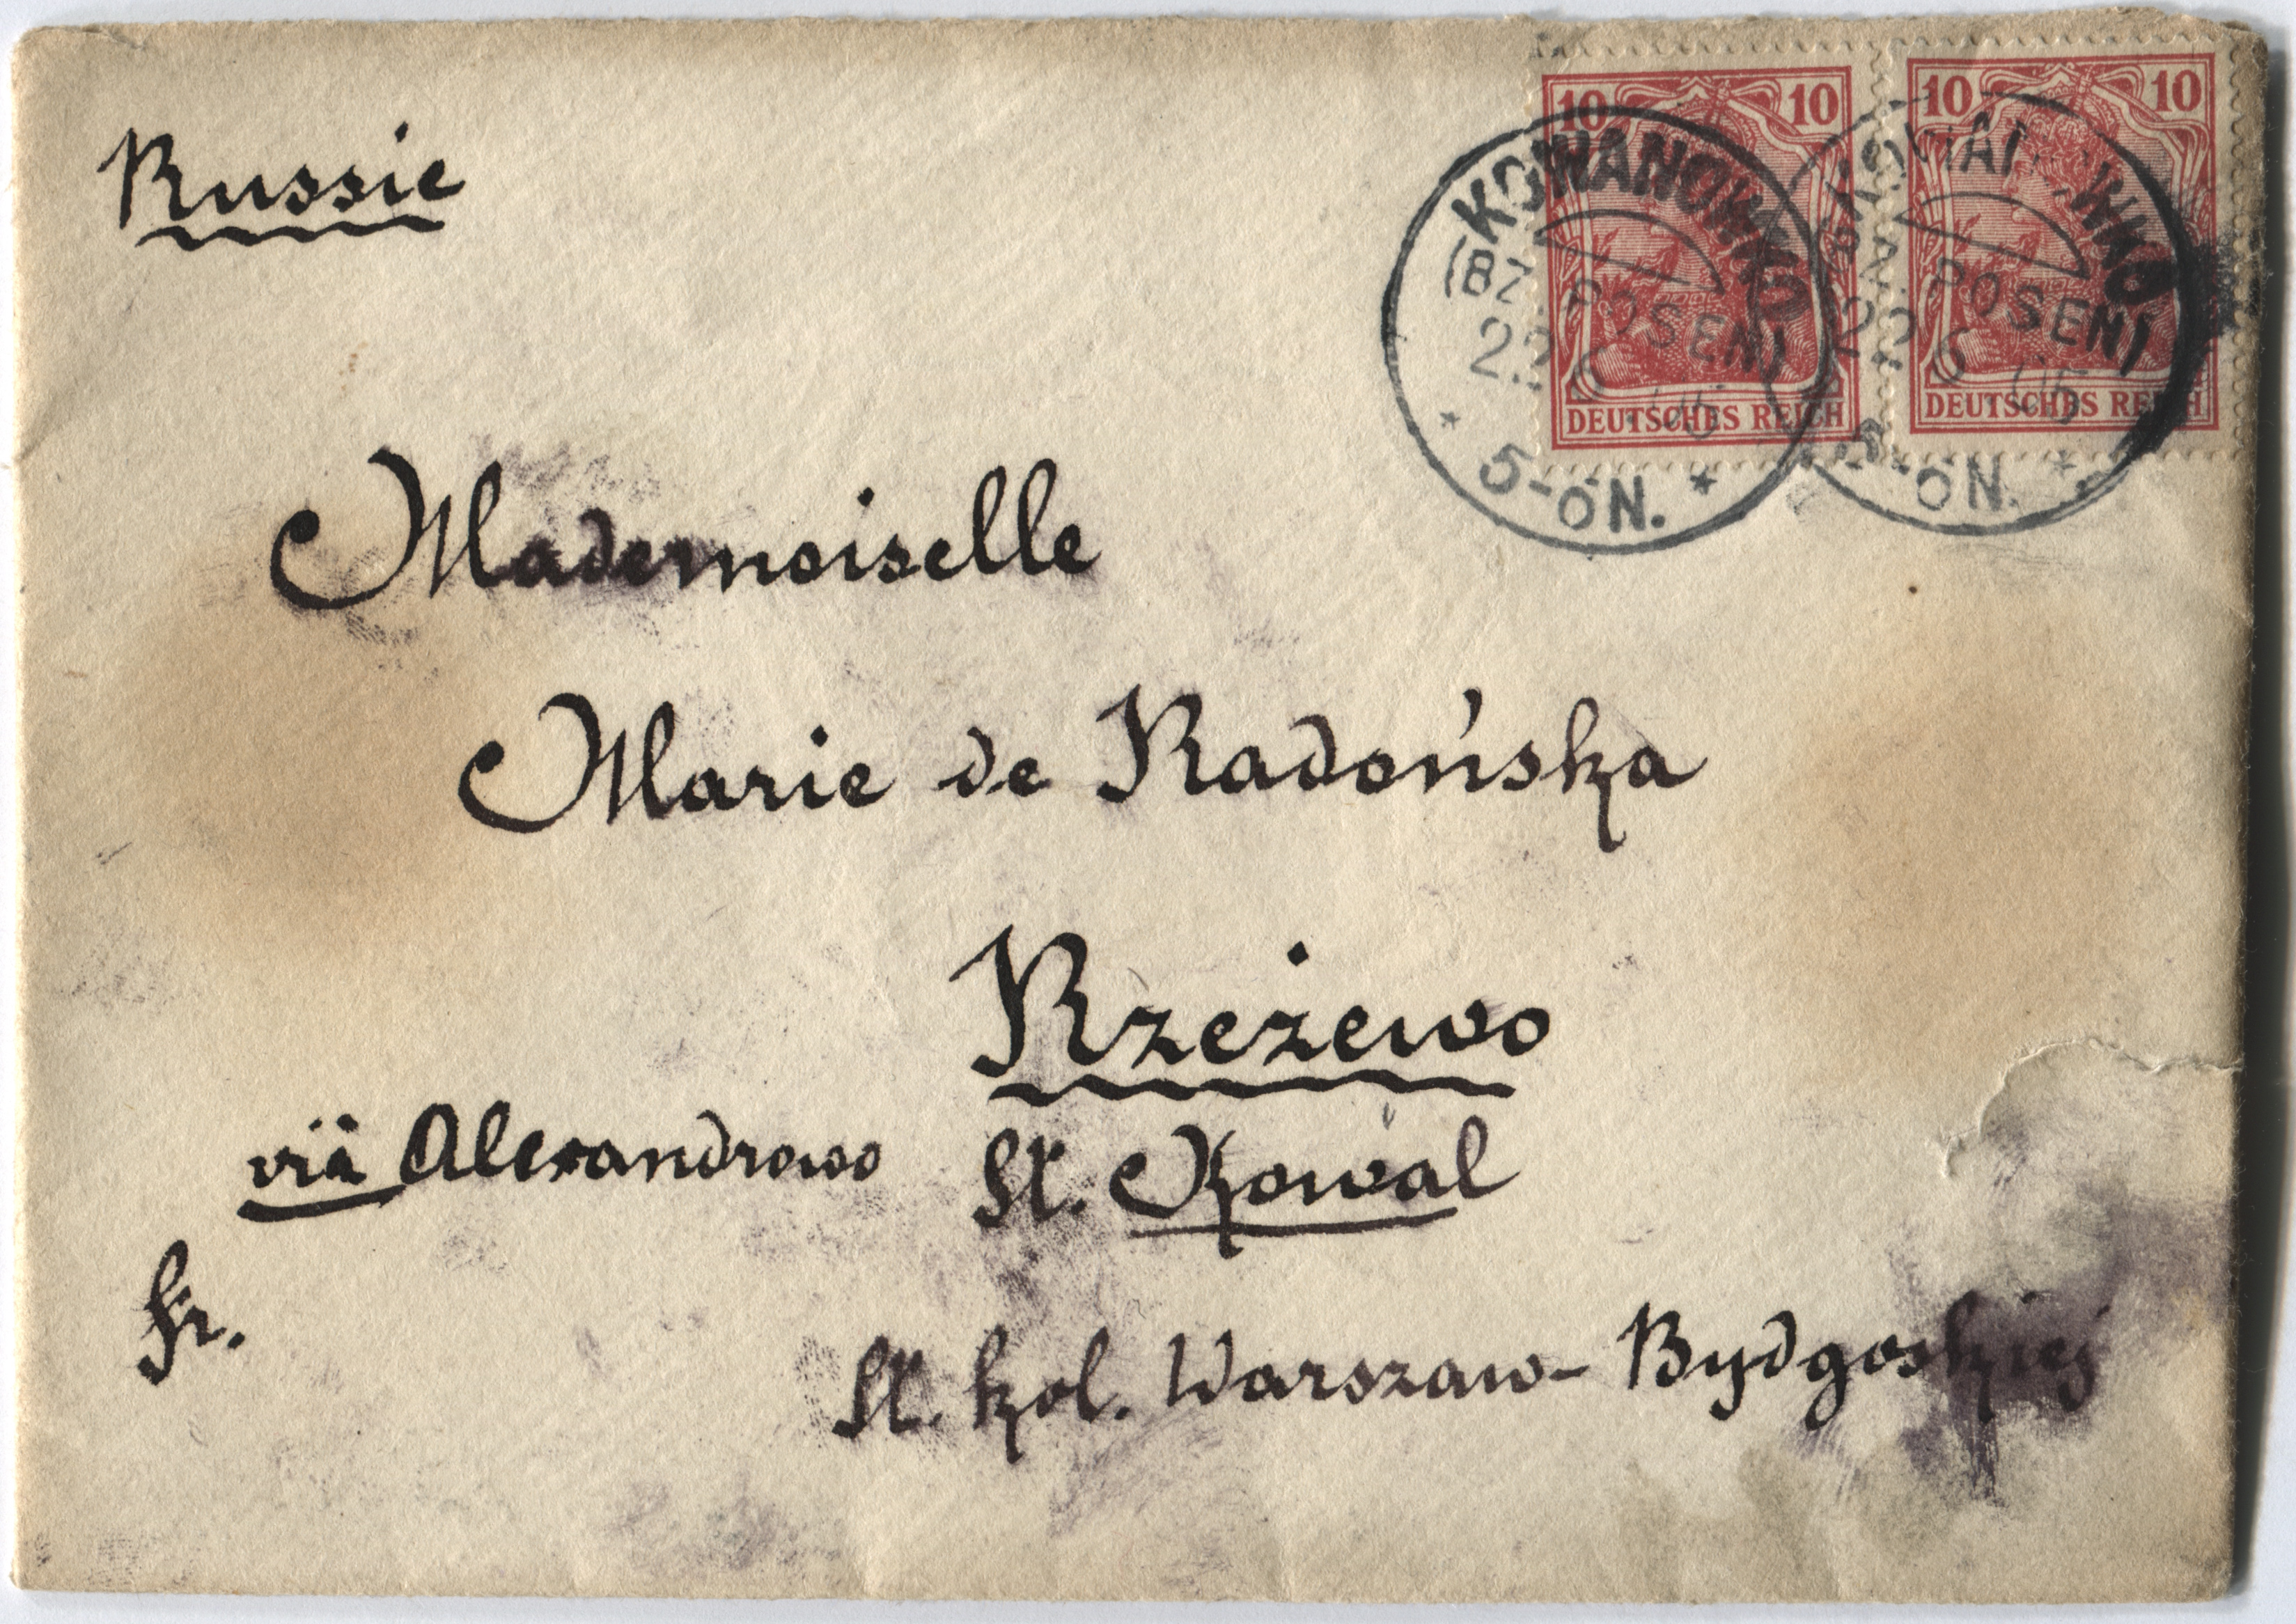 Russie
10 10
10 10
KOWANOWKO
(BZ. POSEN)
22 6 05
DEUTSCHES REICH
* 5-6N. *
POSEN)
22 6 05
DEUTSCHES REICH
-6N. *
Mademoiselle
Marie de Radońska
Rzeżewo
viâ Alexandrowo St. Kowal
fr.
St. kol. Warszaw- Bydgoskiej